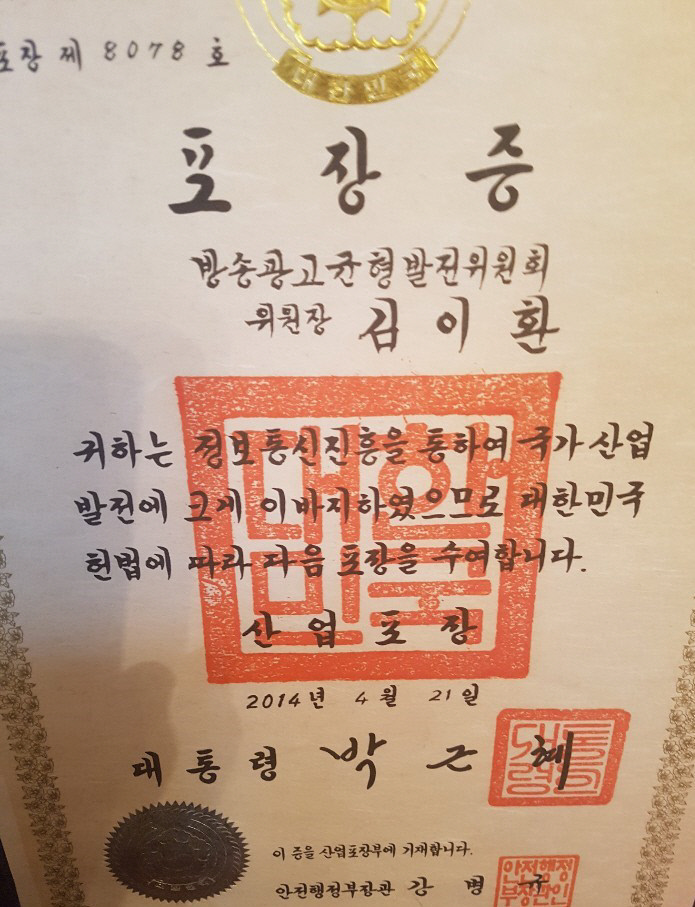 포장 제 8078 호
대한민국
포 장 증
방송광고균형발전위원회
위원장 김 이 환
귀하는 정보통신진흥을 통하여 국가 산업
발전에 크게 이바지하였으므로 대한민국
헌법에 따라 다음 포장을 수여합니다.
대한
민국
산 업 포 장
2014년 4월 21일
대 통 령 박 근 혜
이 증을 산업포장부에 기재합니다.
안전행정부장관 강 병 규
안전행정
부장관인